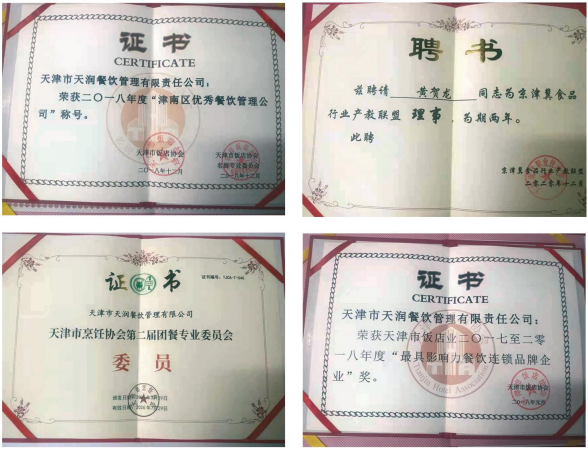 证书
CERTIFICATE
天津市天润餐饮管理有限责任公司：
荣获二〇一八年度“津南区优秀餐饮管理公
司”称号。
天津市饭店协会
天津市饭店协会
二〇一八年十二月
二〇一八年十二月
聘书
兹聘请 黄贺龙 同志为京津冀食品
行业产教联盟 理事，为期两年。
此聘
京津冀食品行业产教联盟
二零二零年十二月
证书
天津市天润餐饮管理有限公司
天津市烹饪协会第二届团餐专业委员会
委员
证书
CERTIFICATE
天津市天润餐饮管理有限责任公司：
荣获天津市饭店业二〇一七至二零
一八年度“最具影响力餐饮连锁品牌企
业”奖。
Tianjin Hotel Association
天津市饭店协会